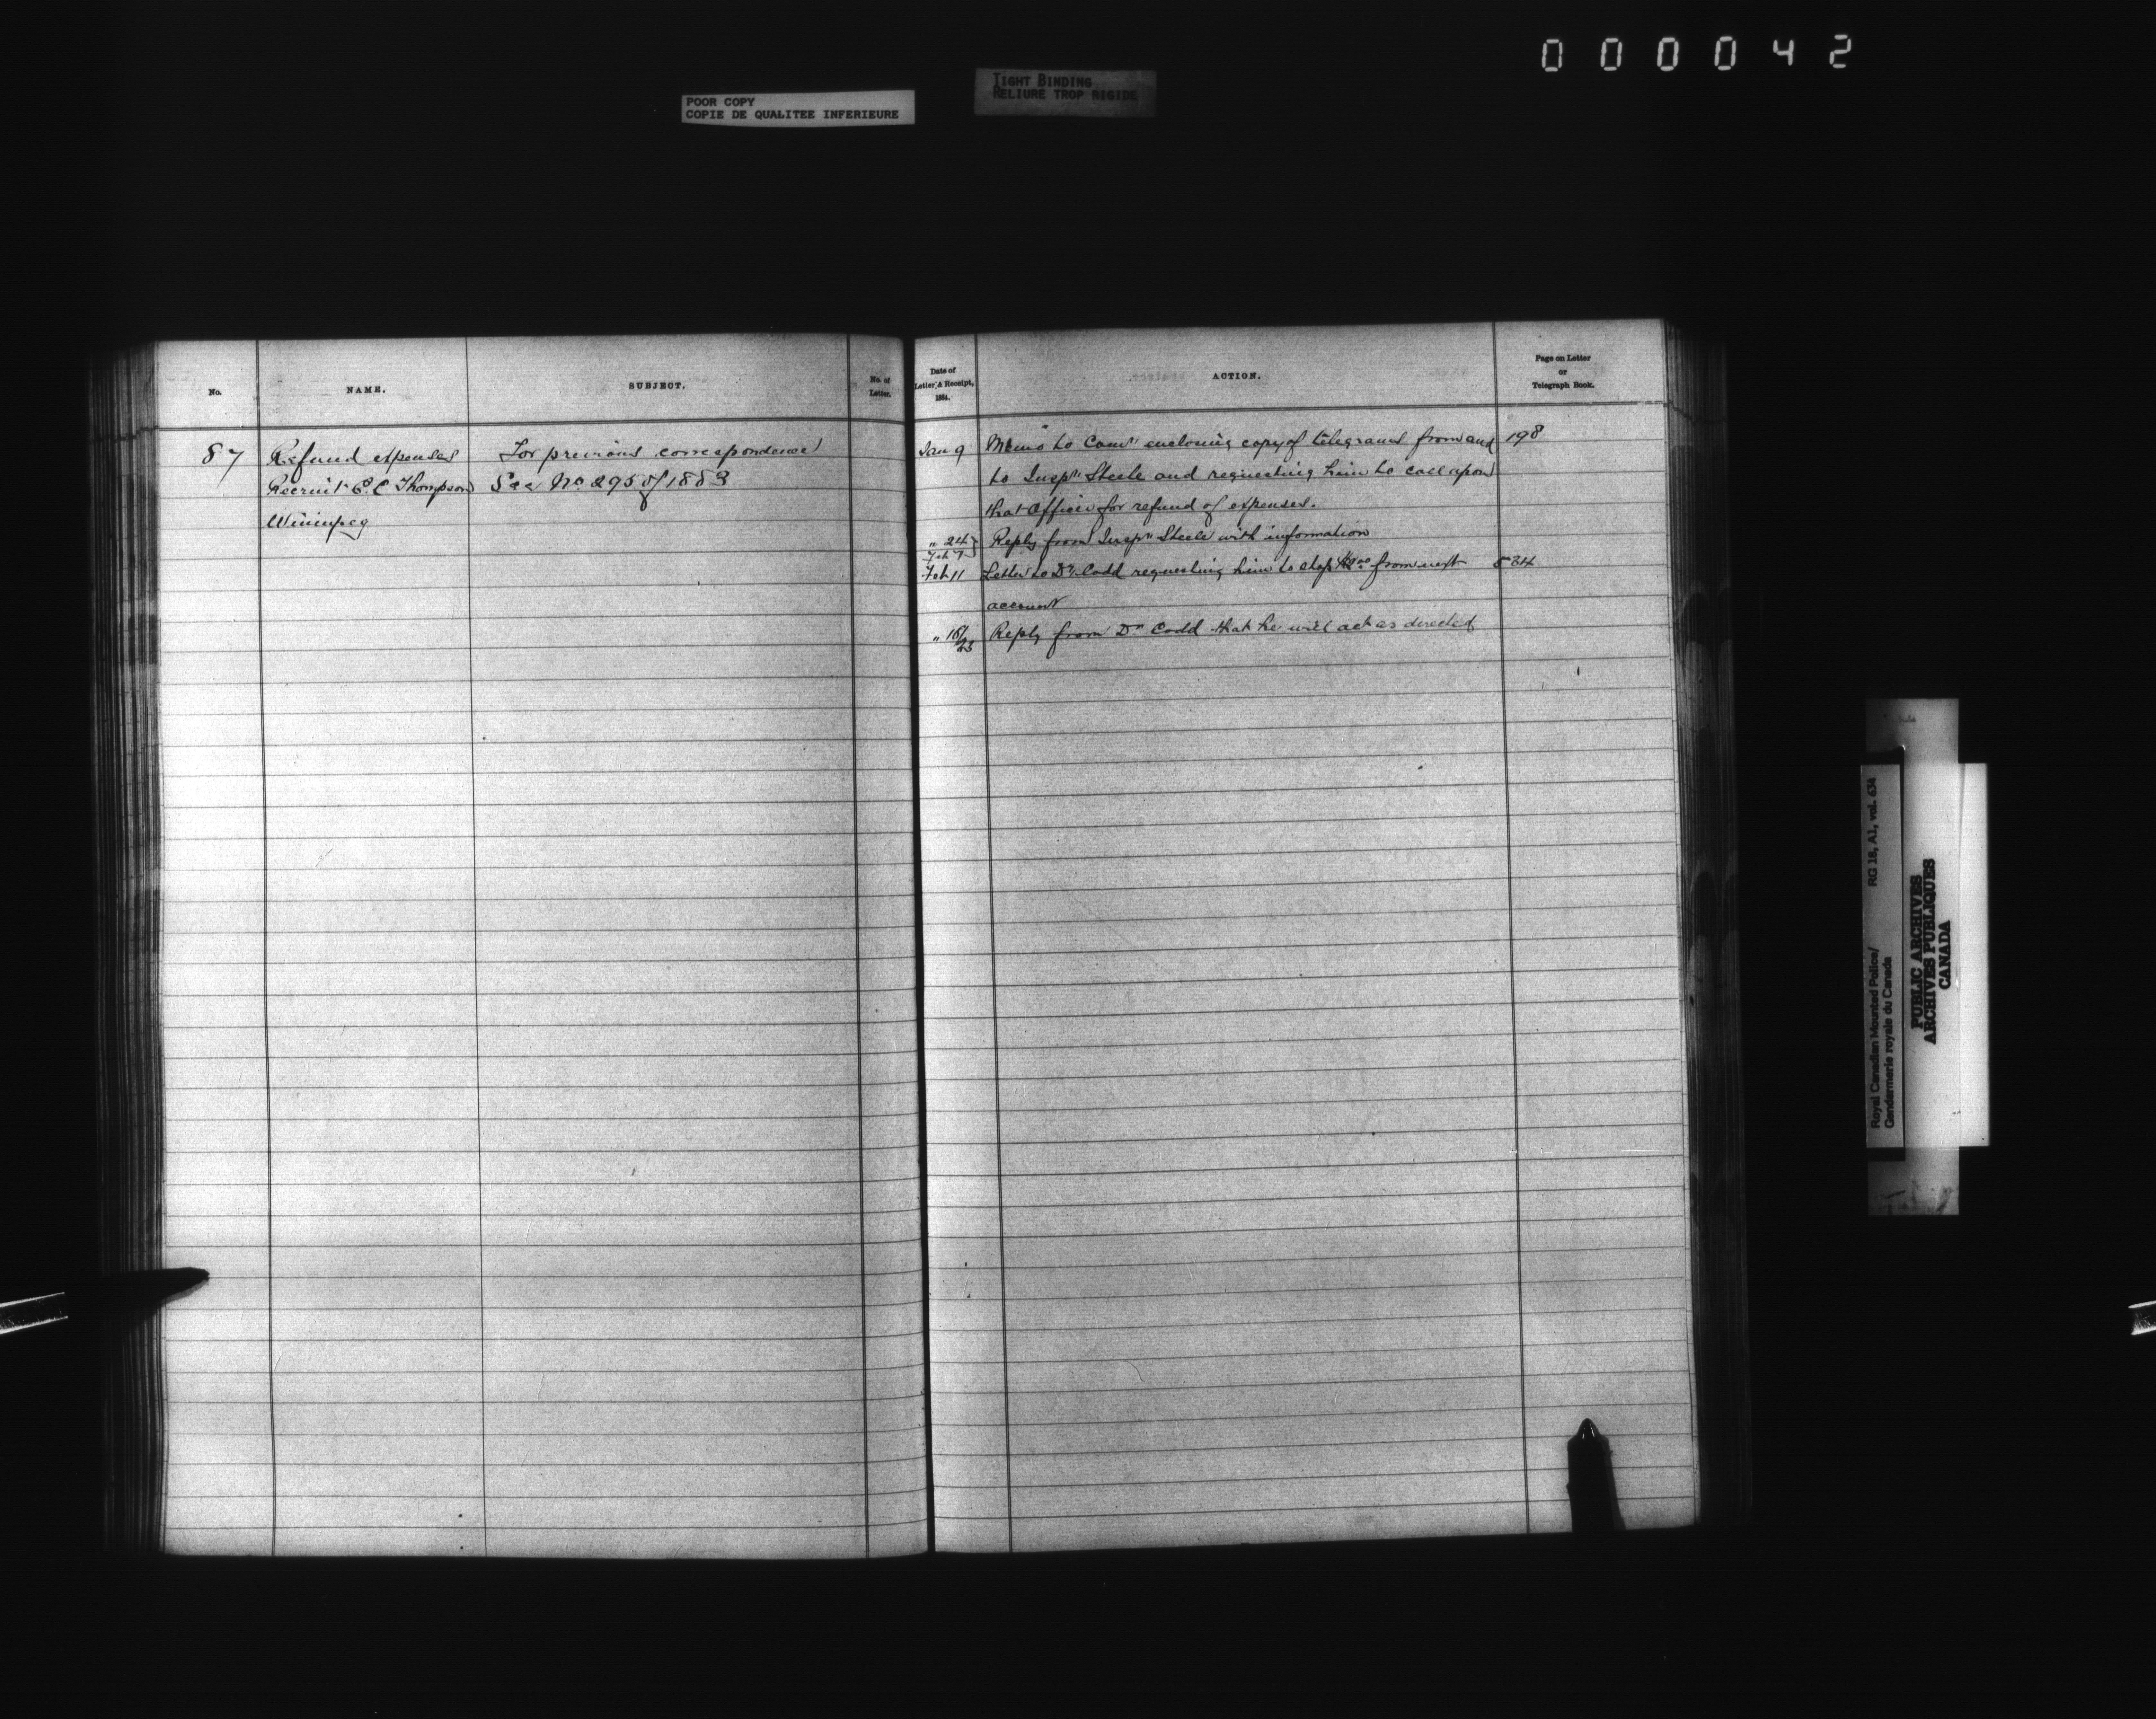 000042
POOR COPY
COPIE DE QUALITEE INFERIEURE
TIGHT BINDING
RELIURE TROP RIGIDE
No.
NAME.
SUBJECT.
No. of
Letter.
Date of
Letter & Receipt,
1884.
ACTION.
Page on Letter
or
Telegraph Book.
87
Refund expenses
Recruit C. C Thompson
Winnipeg
For previous correspondence
See No. 295 of 1883
Jan 9 Memo to Comr enclosing copy of telegrams from and 198
to Inspr Steele and requesting him to call upon
that Officer for refund of expenses.
" 24 Reply from Inspr Steele with information
Feb 7
Feb 11 Letter to Dr Codd requesting him to stop from next 534
account
" 18/25 Reply from Dr Codd that he will act as directed
Royal Canadian Mounted Police/
Gendarmerie royale du Canada
RG 18, A1, vol. 634
PUBLIC ARCHIVES
ARCHIVES PUBLIQUES
CANADA